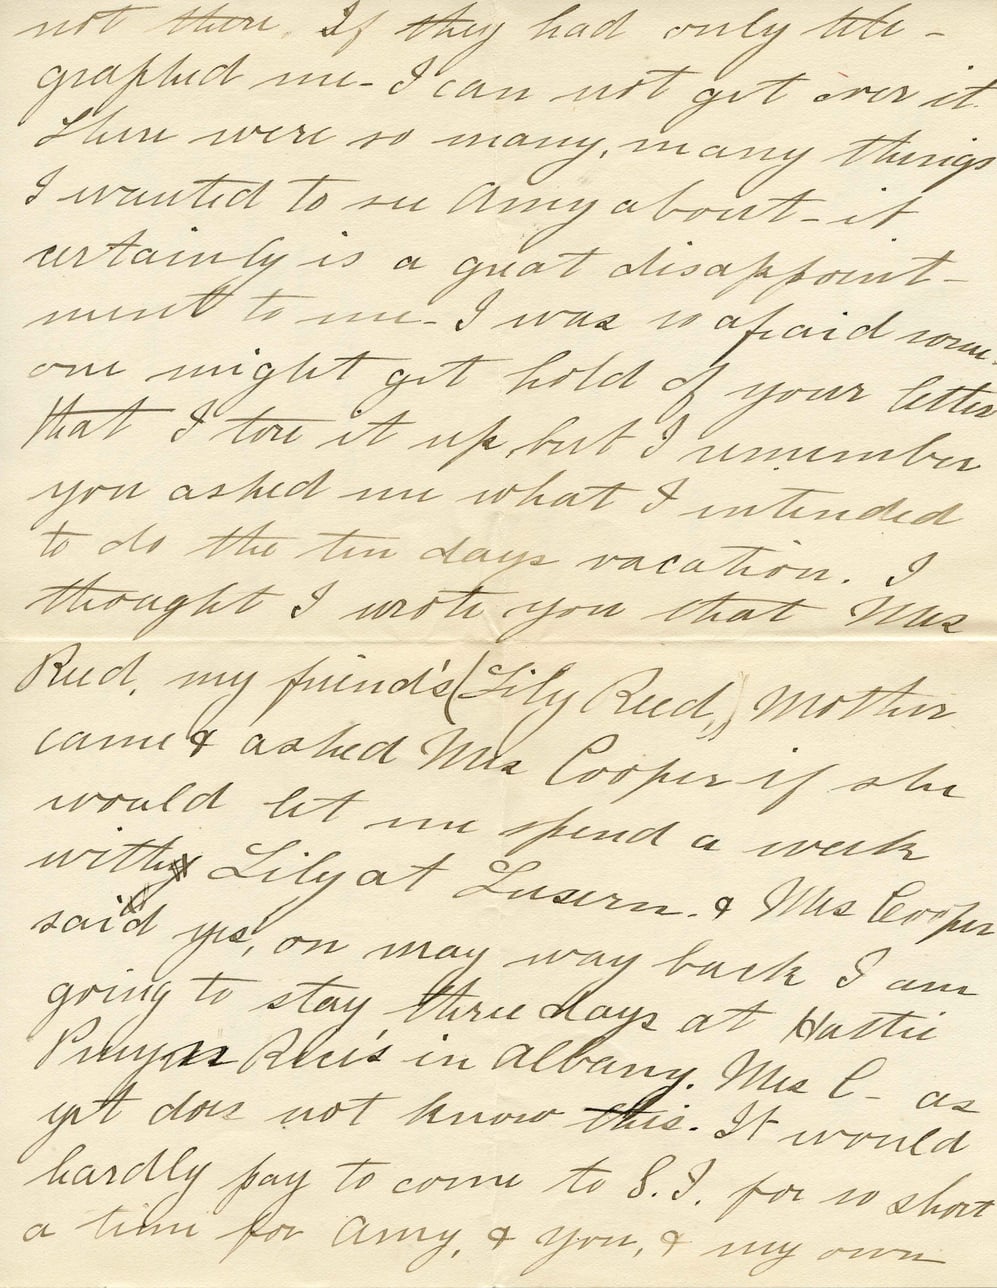 not there. If they had only tele-
graphed me - I can not get over it.
There were so many, many things
I wanted to see Amy about - it
certainly is a great disappoint-
ment to me - I was so afraid some-
one might get hold of your letter
that I tore it up, but I remember
you asked me what I intended
to do the ten days vacation. I
thought I wrote you that Mrs
Reed, my friend's (Lily Reed,) Mother
came & asked Mrs Cooper if she
would let me spend a week
with Lily at Lusern. & Mrs Cooper
said yes, on may way back I am
going to stay three days at Hattie
Pruyn Rice's in Albany. Mrs C - as
yet does not know this. It would
hardly pay to come to S. I. for so short
a time for Amy, & you, & my own